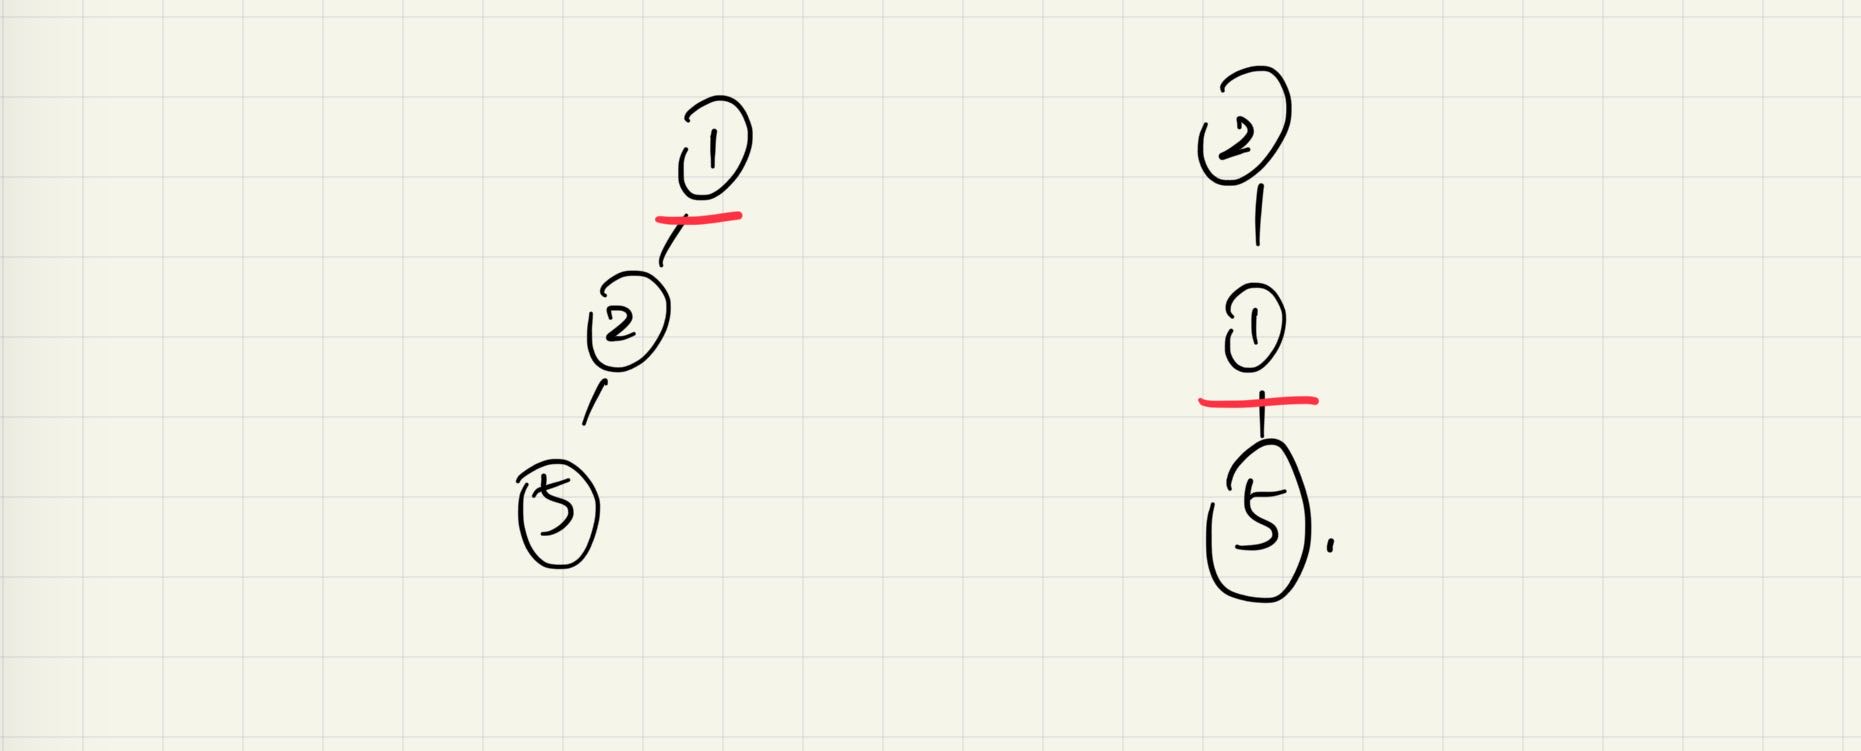 1
2
5
2
1
5.